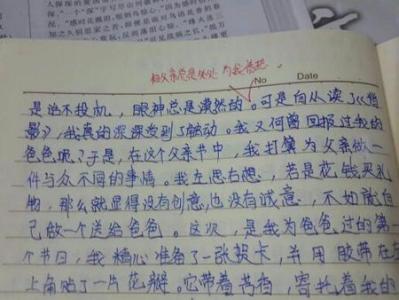 感时花溅泪，恨别鸟惊心
父亲总是处处 为我着想
No Date
是话不投机，眼神总是漠然的。可是自从读了《背
影》，我真的深深受到了触动。我又何曾回报过我的
爸爸呢？于是，在这个父亲节中，我打算为父亲做一
件与众不同的事情。我左思右想，若是花钱买礼
物，那么就显得没有创意，也没有诚意，不如就自
己做一个送给爸爸。这次，是我为爸爸过的第一
个节日，我精心准备了一张贺卡，并用胶带在左
上角贴了一片花瓣。它带着芳香，寄托着我的